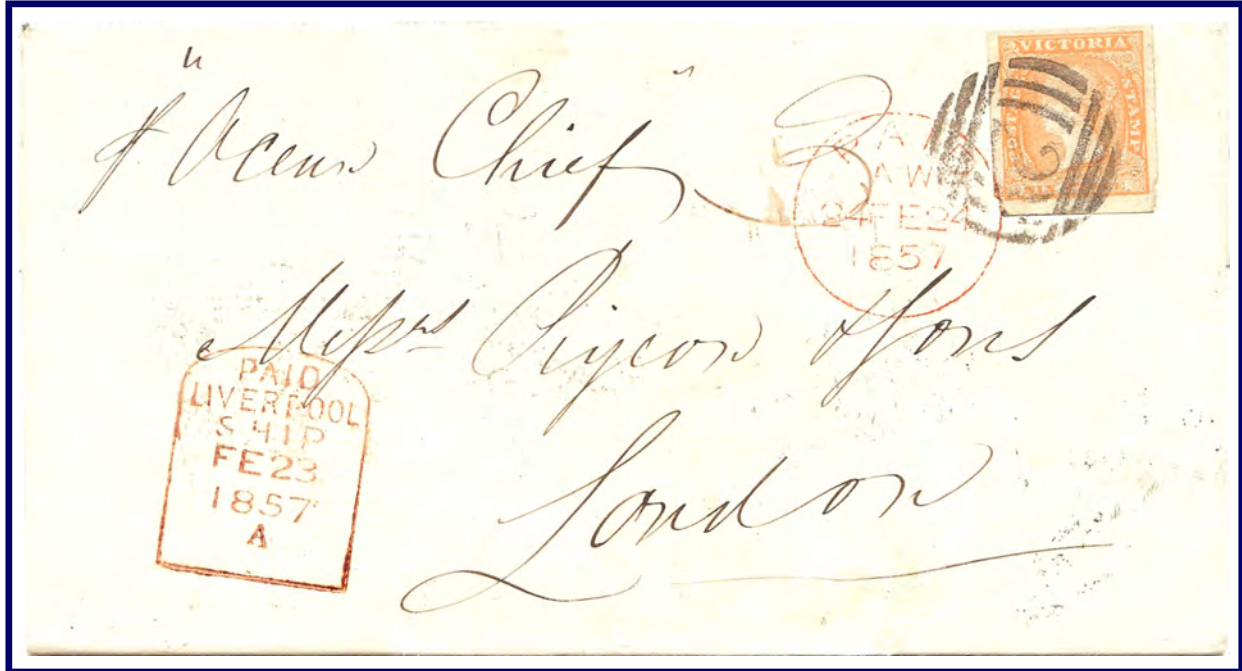 "
p "Ocean Chief"
VICTORIA
POSTAGE
STAMP
PAID
AW
24 FE 24
1857
Messrs Pigeon & Sons
London
PAID
LIVERPOOL
SHIP
FE 23
1857
A